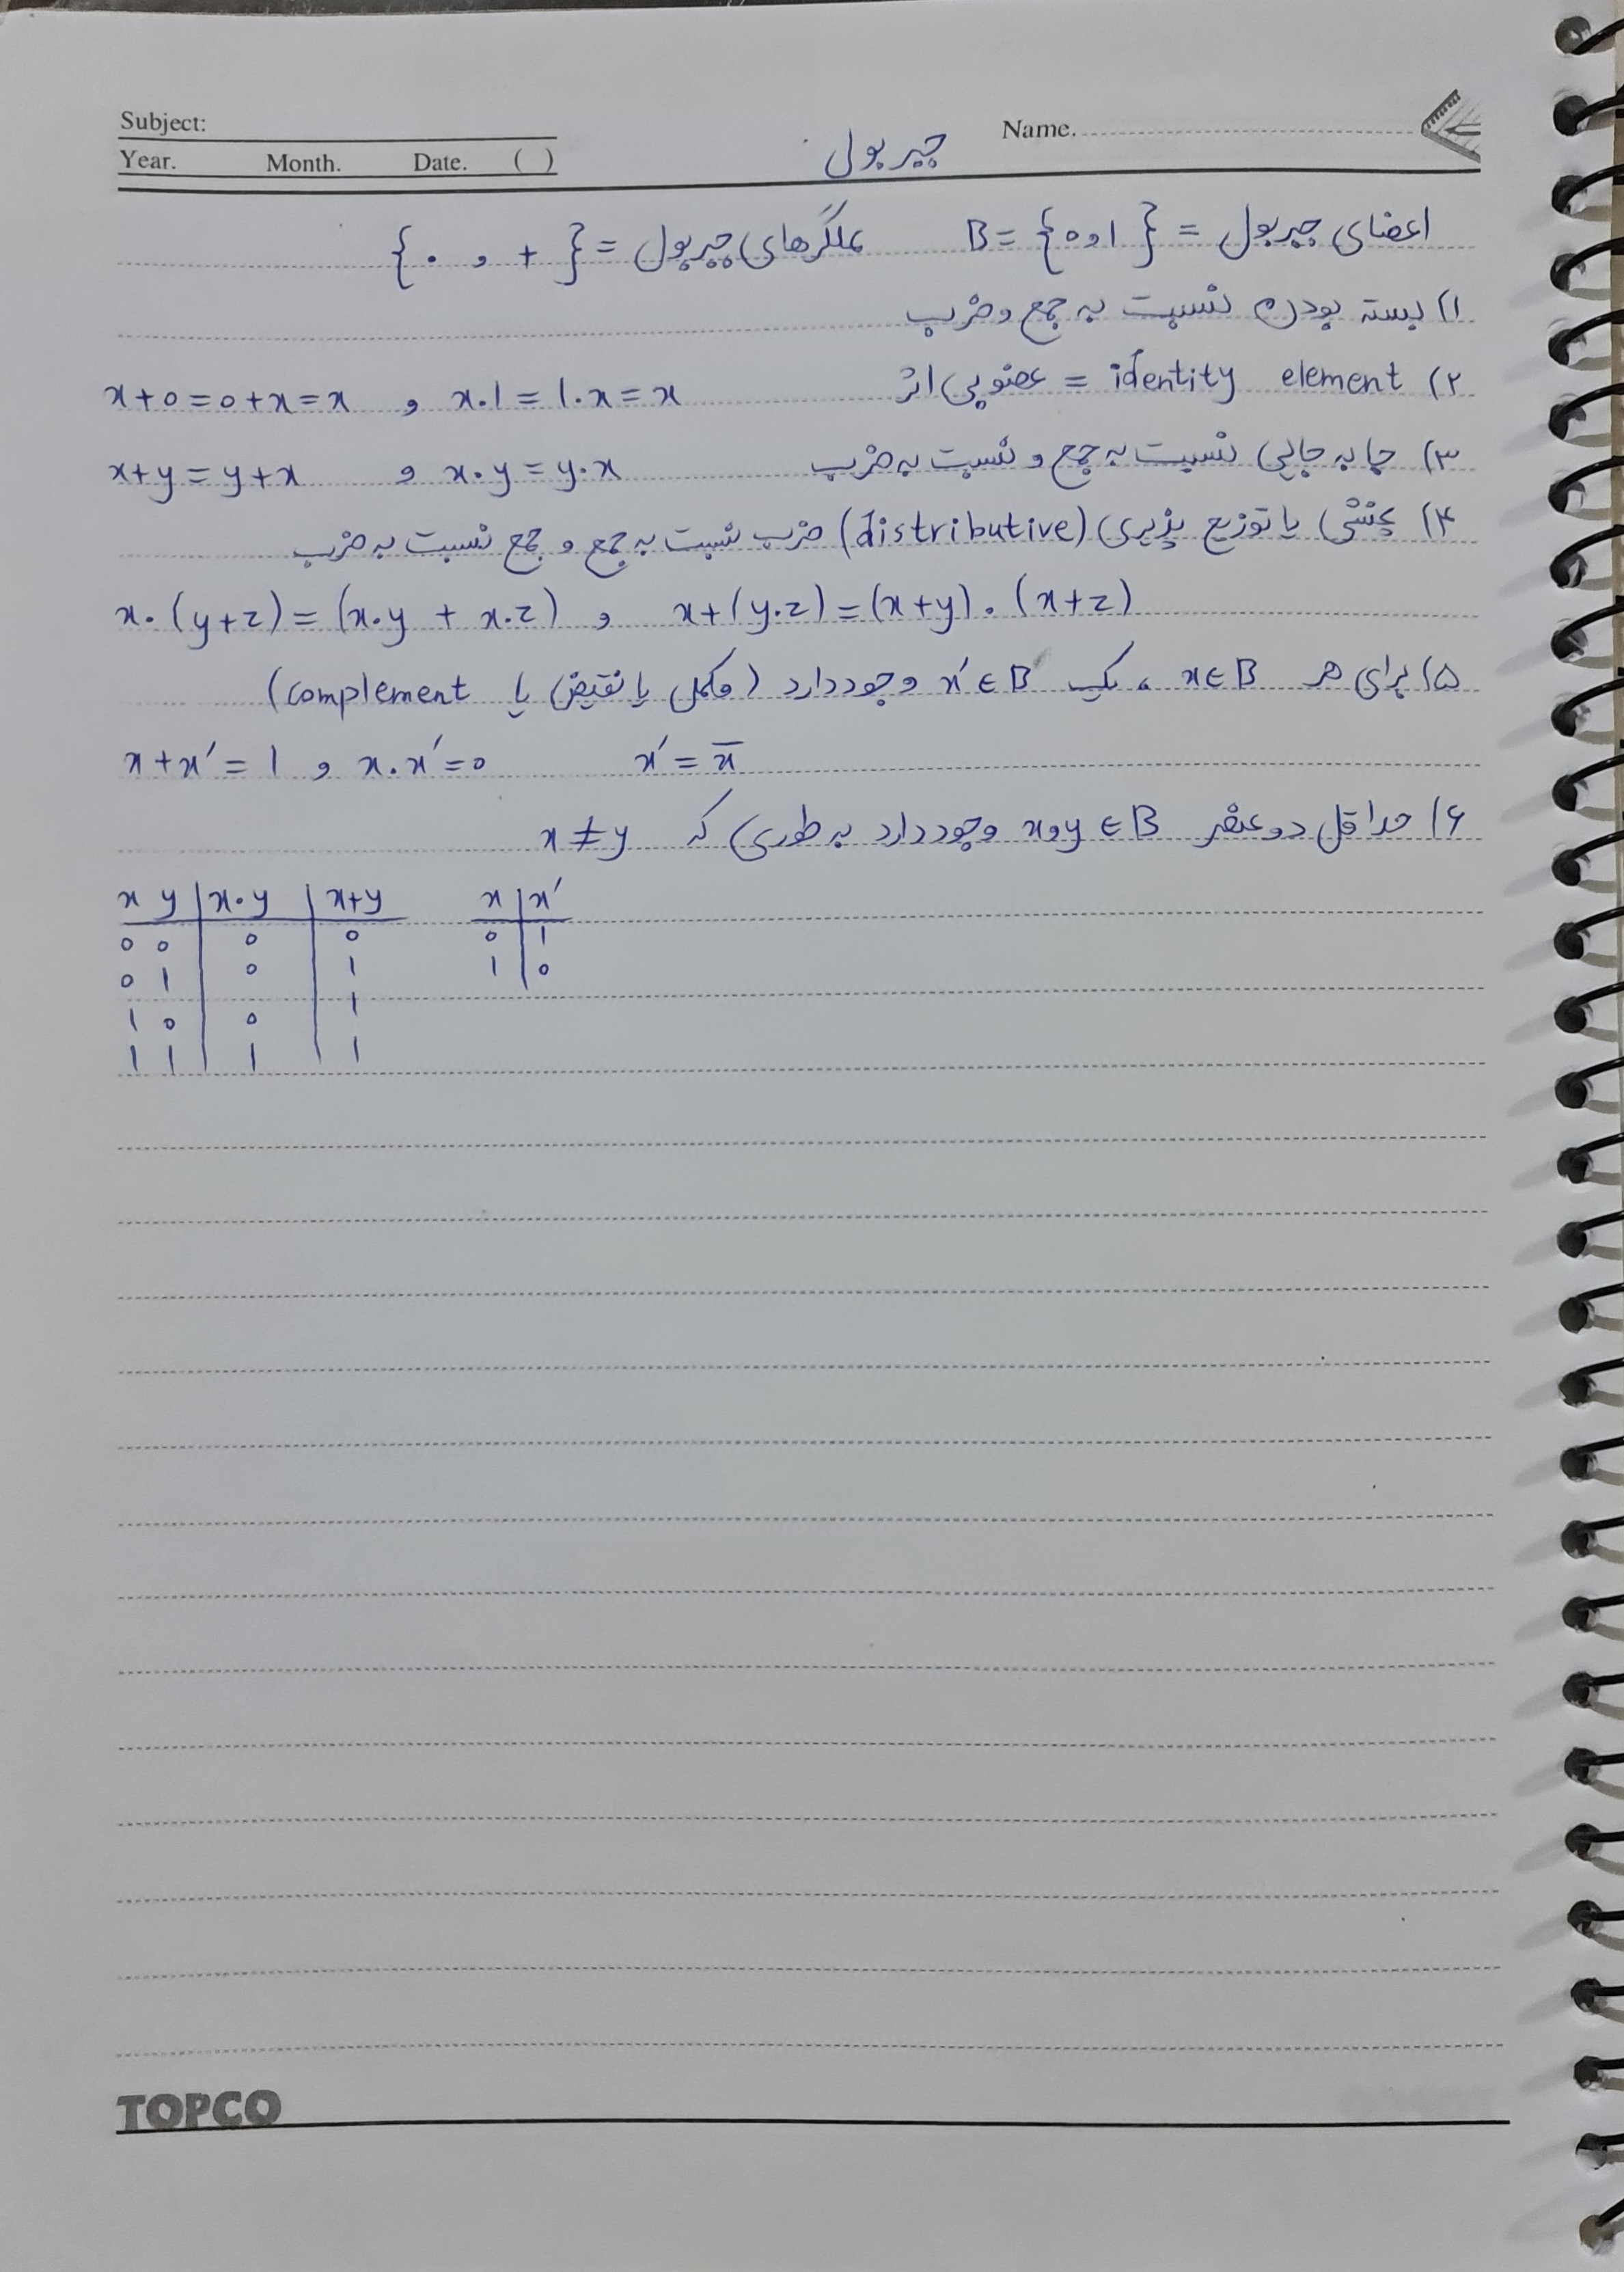 Subject:
Year. Month. Date. ( )
Name.
جبر بول
اعضای جبر بول = B = {0 و 1} عملگرهای جبر بول = {+ و .}
۱) بسته بودن نسبت به جمع و ضرب
۲) identity element = عضو بی اثر x+0=0+x=x و x.1=1.x=x
۳) جا به جایی نسبت به جمع و نسبت به ضرب x+y=y+x و x.y=y.x
۴) پخشی یا توزیع پذیری (distributive) ضرب نسبت به جمع و جمع نسبت به ضرب
x.(y+z)=(x.y + x.z) و x+(y.z)=(x+y).(x+z)
۵) برای هر x∈B ، یک x'∈B وجود دارد (مکمل یا نقیض یا complement)
x+x'=1 و x.x'=0 x'=x̅
۶) حداقل دو عنصر x,y∈B وجود دارد به طوری که x≠y
x y | x.y | x+y x | x'
0 0 | 0 | 0 0 | 1
0 1 | 0 | 1 1 | 0
1 0 | 0 | 1
1 1 | 1 | 1
TOPCO